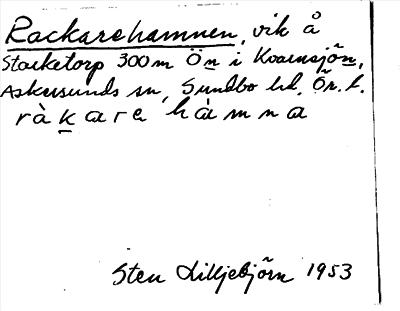 Rackarehamnen, vik å
Starketorp 300 m Ön i Kvarnsjön,
Askersunds sn, Sundbo hd, Ör. l.
ràkare hàmna
Sten Lilljebjörn 1953